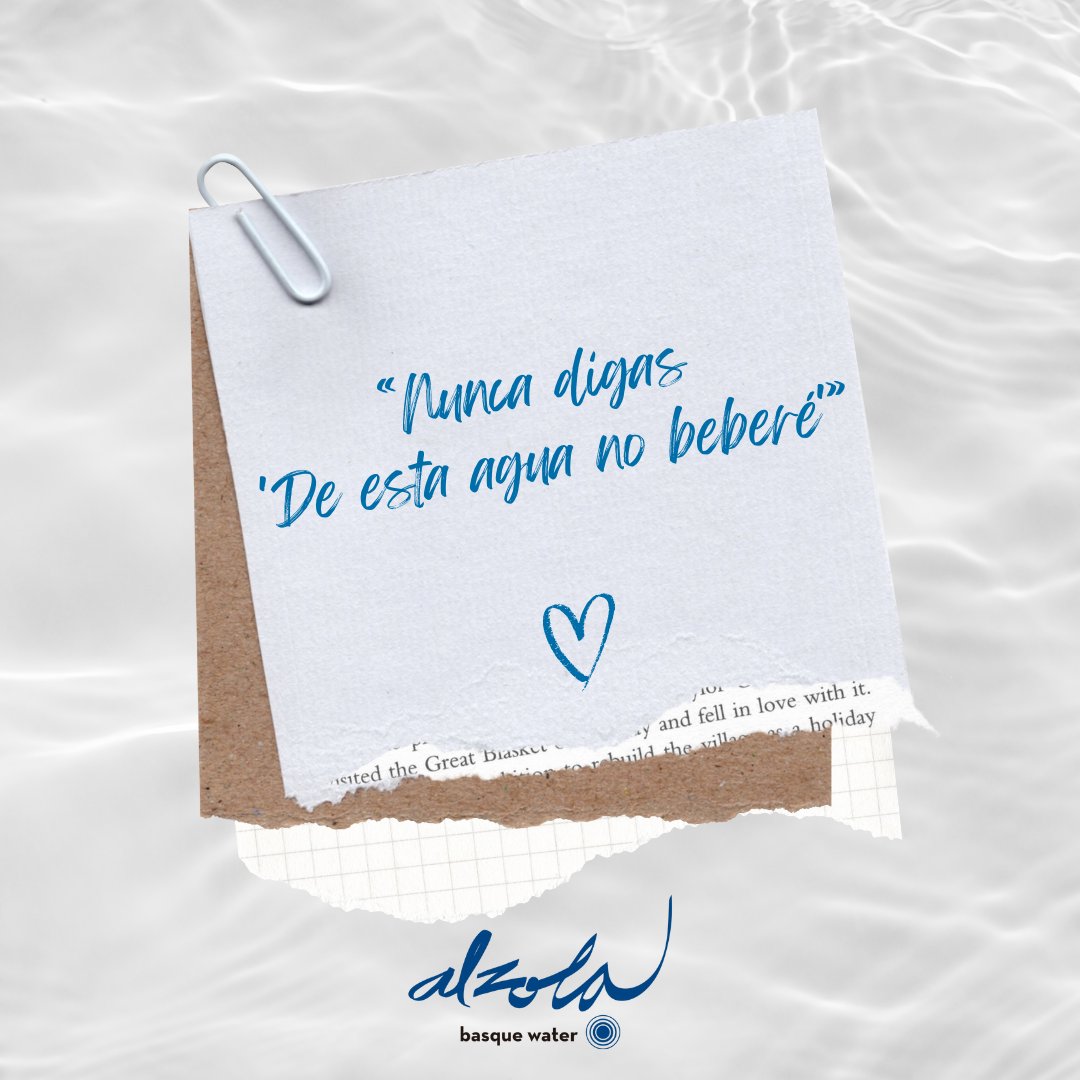 “Nunca digas
'De esta agua no beberé'”
and fell in love with it.
visited the Great Blasket
rebuild the village as a holiday
alzola
basque water